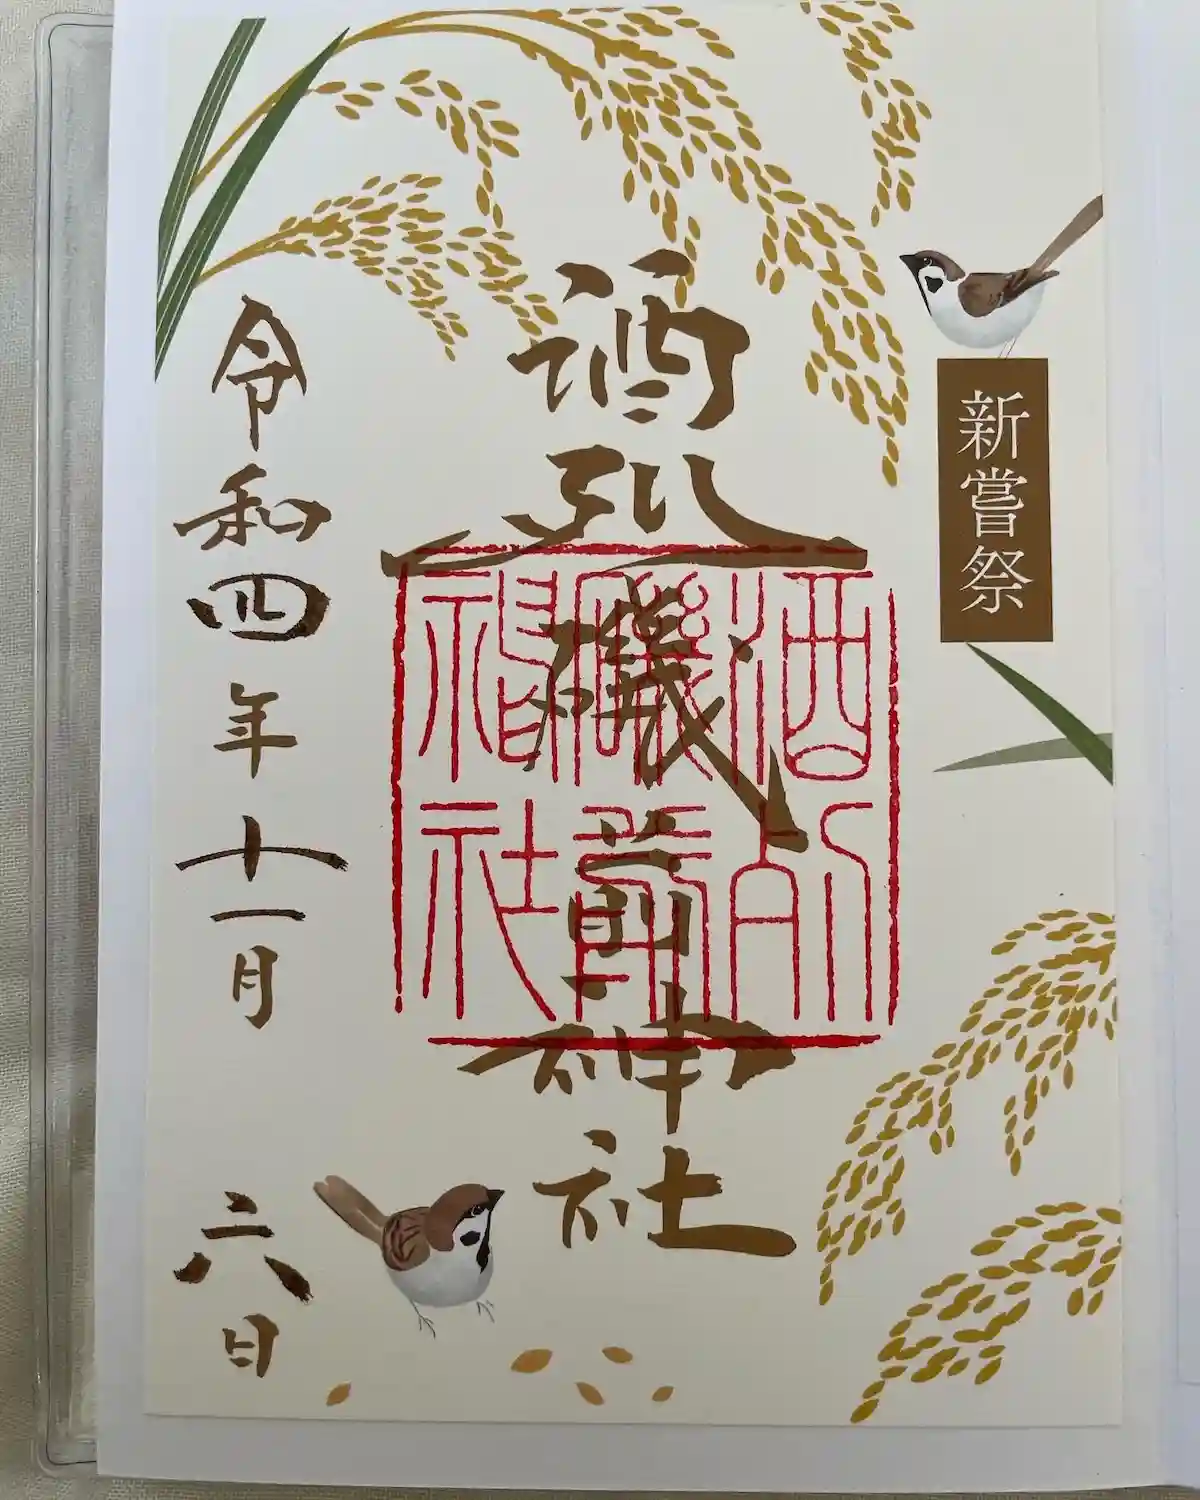 新嘗祭
酒列磯前神社
酒列
磯前
神社
令和四年十一月六日